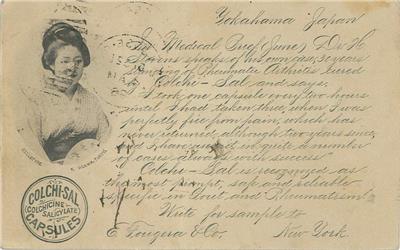 Yokahama Japan
In Medical Brief (June) Dr H
Stevens speaks of his own case, 30 years
standing of Rheumatic Arthritis cured
by Colchi-Sal and says,
I took one capsule every two hours
until I had taken three, when I was
perfectly free from pain, which has
never returned, although two years since,
and I have used in quite a number
of cases always with success
Colchi-Sal is recognized as
the most prompt, safe and reliable
specific in Gout and Rheumatism
Write for samples to
E Fougera & Co. New York
COLCHI-SAL
(COLCHICINE
SALICYLATE)
CAPSULES